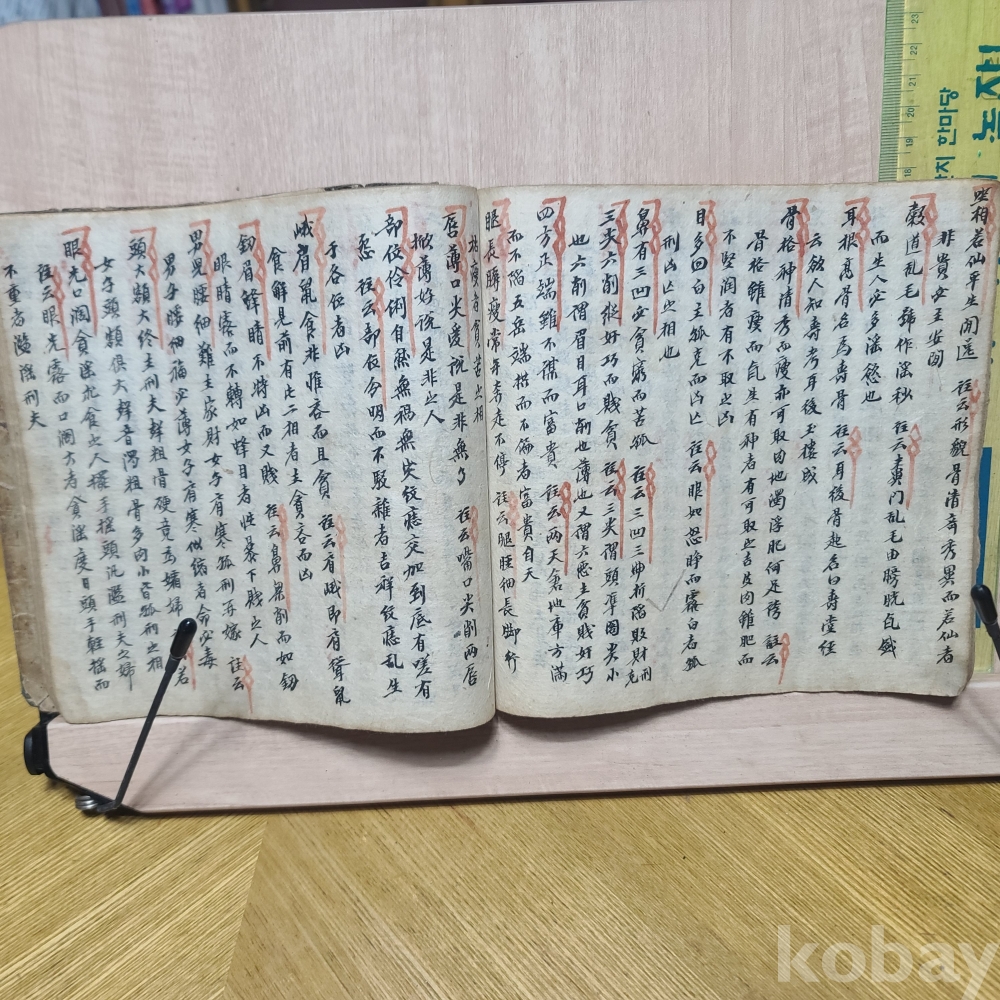 坐相若仙平生閑逸 註云形貌骨清奇秀異而若仙者
非貴必主安閑
穀道乱毛號作淫秒 註云糞門乱毛由膀胱氣盛
而生人必多淫慾也
耳根高骨名爲壽骨 註云耳後骨起名曰壽堂経
云欲人知壽考耳後玉樓成
骨格神清秀而瘦亦可取由地濁浮肥何足誇 註云
骨格雖瘦而氣生有神者有可取必若皮肉雖肥而
不堅潤者有不取之凶
目多回白主孤克而凶亡 註云眼如怒睁而露白者孤
刑凶亡之相也
鼻有三凹必貧窮而苦孤 註云三凹三曲折陷敗財刑克
三尖六削縱好巧而賤貧 註云三尖謂頭凖閣尖小
也六削謂眉目耳口削也薄也又謂六惡主貧賤好巧
四方正端雖不謀而富貴 註云兩天倉地庫方滿
而不陷五岳端拱而不偏者富貴自天
腿長脚瘦常年奔走不停 註云腿脛細長脚行
枯瘦者貧苦之相
唇薄口尖愛說是非無了 註云嘴口尖削兩唇
掀薄好說是非之人
部位伶俐自然無禍無灾紋痣交加到底有嗟有
忢 註云部位分明而不駁雜者吉祥紋痣乱生
于各位者凶
峨眉鼠食非惟吝而且貧 註云眉峨即眉聳鼠
食解見前有此二相者主貪吝而凶
釰眉蜂睛不特凶而又賤 註云鼻梁削而如釰
眼睛露而不轉如蜂目者性暴下賤之人
男兒腰細難主家財女子有寒孤刑再嫁 註云
男子腰細福必薄女子有寒似傷者命必毒
頭大額大終主刑夫聲粗骨硬竟爲孀婦 若
女子頭額俱大聲音濁粗骨多肉小皆孤刑之相
眼光口濶貪淫求食之人擺手搖頭汎濫刑夫之婦
註云眼光露而口濶大者貪淫度日頭手輕搖而
不重者濫淫刑夫
농지
한마당
kobay